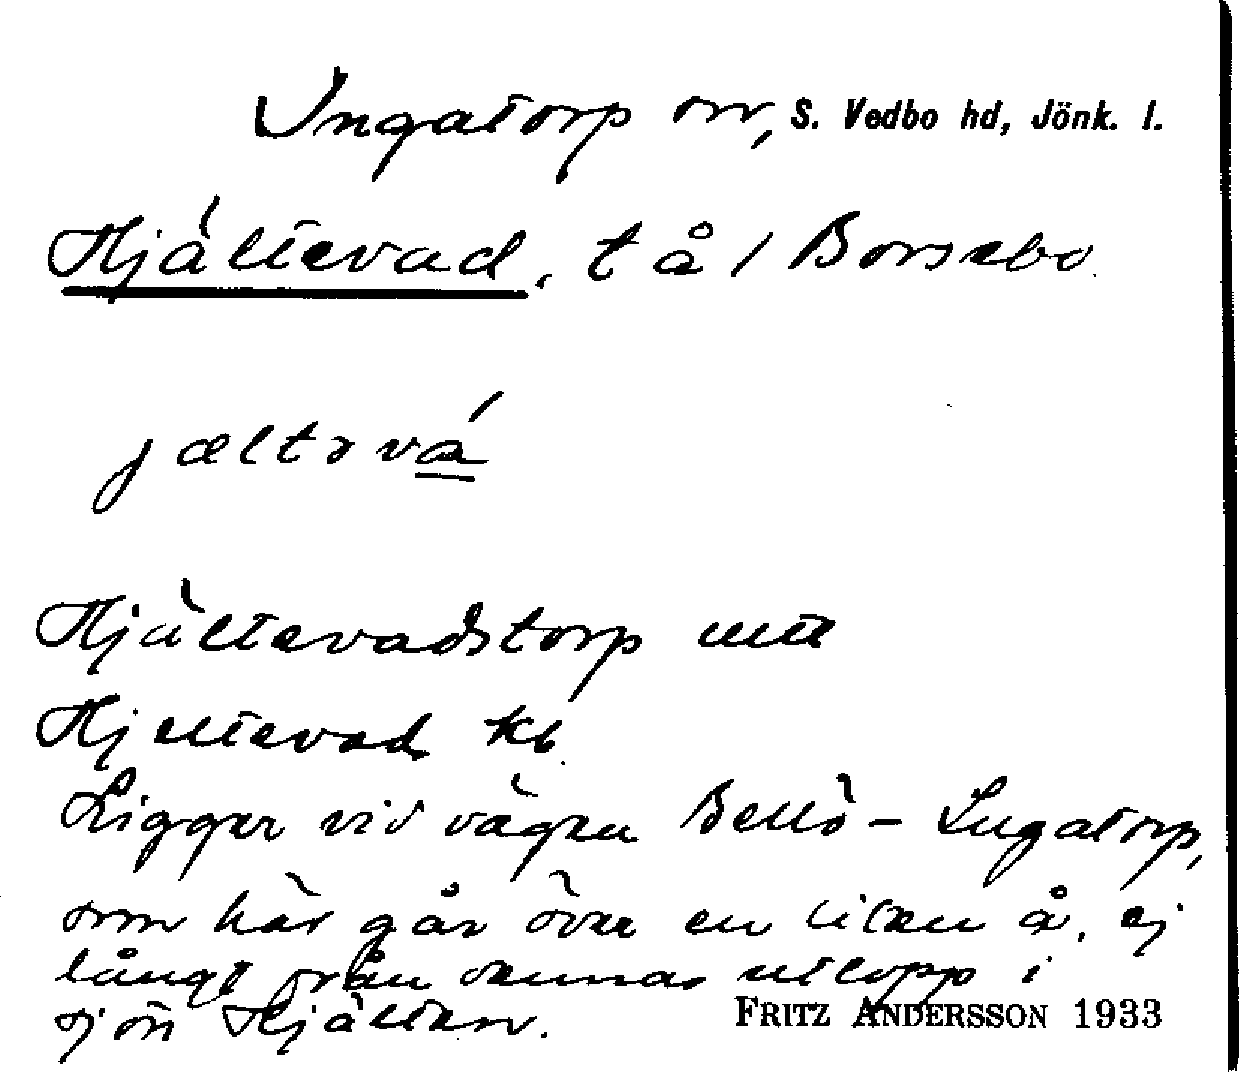 Ingatorp sn, S. Vedbo hd, Jönk. l.
Hjältevad, t å / Borsebo
jæltəvá
Hjältevadstorp
Hjeltevad kb
Ligger vid vägen Bellö - Ingatorp,
som här går över en liten å, ej
långt från dennas utlopp i
sjön Hjälten.
FRITZ ANDERSSON 1933